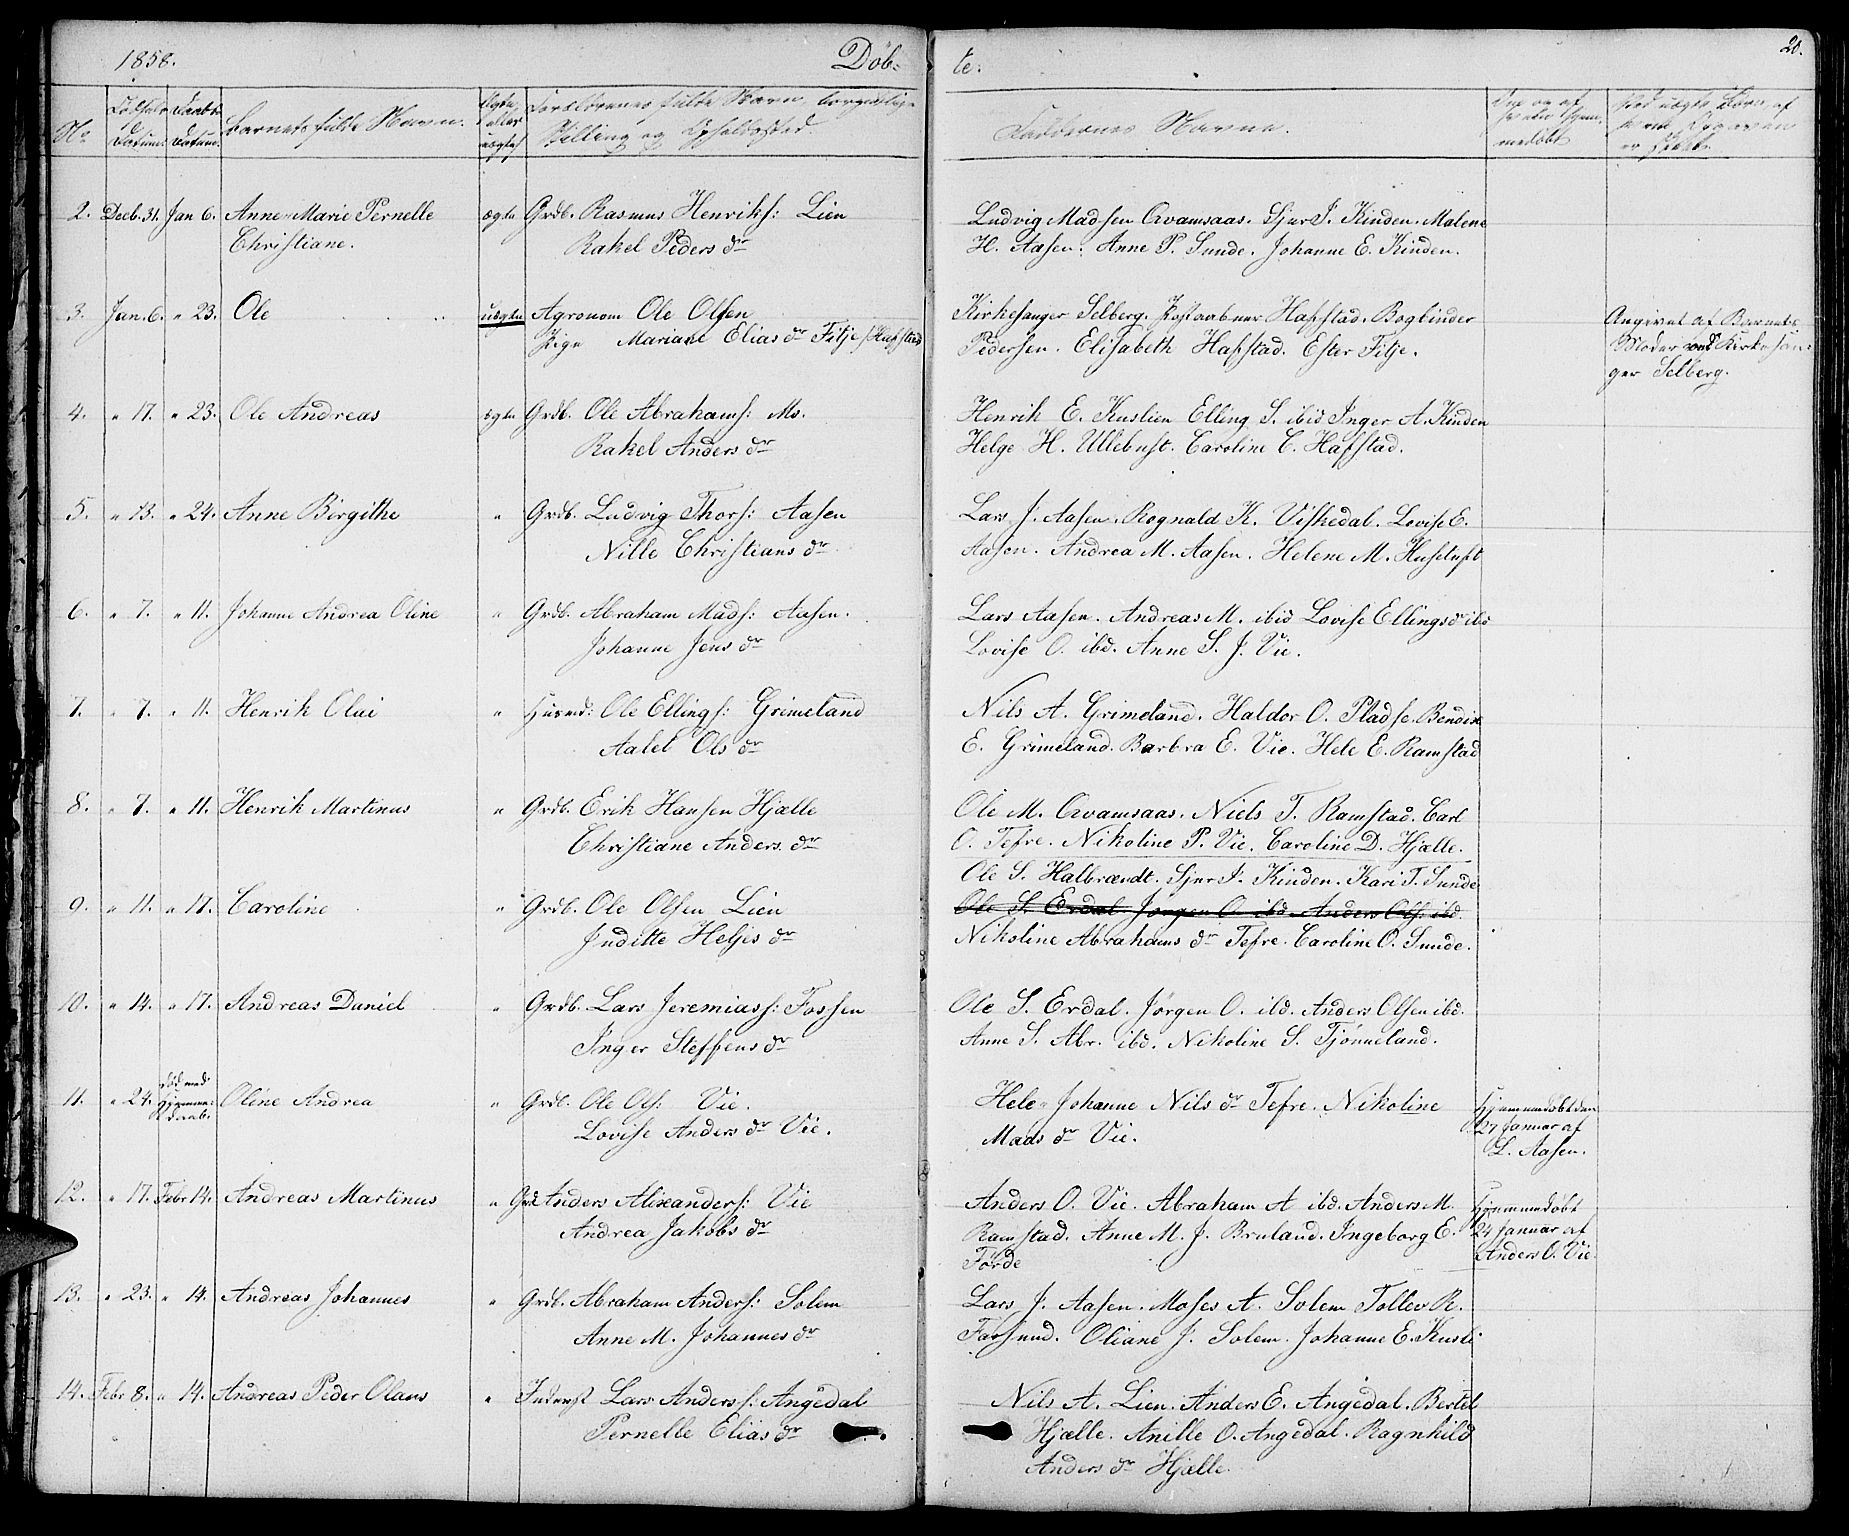 1858.
Döb-
te.
20.
No
Fødsels Datum
Daabs Datum.
Barnets fulde Navn.
Ægte eller uægte
Forældrenes fulde Navn, borgerlige
Stilling og Opholdssted.
Faddernes Navne.
medöbt
2. Decb. 31. Jan 6. Anne Marie Pernelle ægte Grdb. Rasmus Henriks: Lien
Christiane. Rakel Peders dr
Ludvig Madsen Qvamsaas. Sjur J. Kinden. Malene
H. Aasen. Anne P. Sunde. Johanne E. Kinden.
3. Jan. 6. " 23. Ole uægte Agronom Ole Olsen
Pige Mariane Elias dr Fitje / Hafstad
Kirkesanger Selberg. Postaabner Hafstad. Bogbinder
Pedersen. Elisabeth Hafstad. Ester Fitje.
Angivet af Barnets
Moder ved Kirkesan-
ger Selberg.
4. " 17. " 23. Ole Andreas ægte Grdb. Ole Abrahams: Mo.
Rakel Anders dr
Henrik E. Kuslien Elling S. ibid Inger A. Kinden
Helge H. Ullebust. Caroline C. Hafstad.
5. " 13. " 24. Anne Birgithe " Grdb. Ludvig Thors: Aasen
Nille Christians dr
Lars J. Aasen. Rognald K. Viskedal. Lovise E.
Aasen. Andrea M. Aasen. Helene M. Husetuft
6. " 7. " 11. Johanne Andrea Oline " Grdb. Abraham Mads: Aasen.
Johanne Jens dr
Lars Aasen. Andreas M. ibid Lovise Ellingsdr ibd
Lovise O. ibd. Anne S. J. Vie.
7. " 7. " 11. Henrik Olai " Husmd: Ole Ellings: Grimeland
Aalet Ols dr
Nils A. Grimeland. Haldor O. Pladse. Bendix
E. Grimeland. Barbra E. Vie. Hele E. Ramstad
8. " 7. " 11. Henrik Martinus " Grdb. Erik Hansen Hjælle
Christiane Anders dr
Ole M. Qvamsaas. Niels T. Ramstad. Carl
O. Tefre. Nikoline P. Vie. Caroline D. Hjælle.
Ole S. Halbrændt. Sjur J. Kinden. Kari T. Sunde
9. " 11. " 17. Caroline " Grdb. Ole Olsen Lien
Juditte Heljes dr
Ole S. Erdal Jörgen O. ibd. Anders Ols: ibd.
Nikoline Abrahams dr Tefre. Caroline O. Sunde.
10. " 14. " 17. Andreas Daniel " Grdb. Lars Jeremias: Fossen
Inger Steffens dr
Ole S. Erdal. Jörgen O. ibd. Anders Olsen ibd.
Anne S. Abr. ibd. Nikoline S. Tjönneland.
11. " 24. död med Hjemme-daab. Oline Andrea " Grdb. Ole Ols: Vie.
Lovise Anders dr Vie.
Hele Johanne Nils dr Tefre. Nikoline
Mads dr Vie.
Hjemmedöbt den
27 Januar af
L. Aasen.
12. " 17. Febr 14. Andreas Martinus " Grd Anders Alixanders: Vie
Andrea Jakobs dr
Anders O. Vie. Abraham A ibd. Anders M.
Ramstad. Anne M. J. Bruland. Ingeborg E.
Förde
Hjemmedöbt
24 Januar af
Anders O. Vie.
13. " 23. " 14. Andreas Johannes " Grdb. Abraham Anders: Solem
Anne M. Johannes dr
Lars J. Aasen. Moses A. Solem Tollev R.
Farsund. Oliane J. Solem. Johanne E. Kusli
14. Febr 8. " 14. Andreas Peder Olaus " Inderst Lars Anders: Angedal
Pernelle Elias dr
Nils A. Lien. Anders E. Angedal. Bertel
Hjælle. Anille O. Angedal. Ragnhild
Anders dr Hjælle.